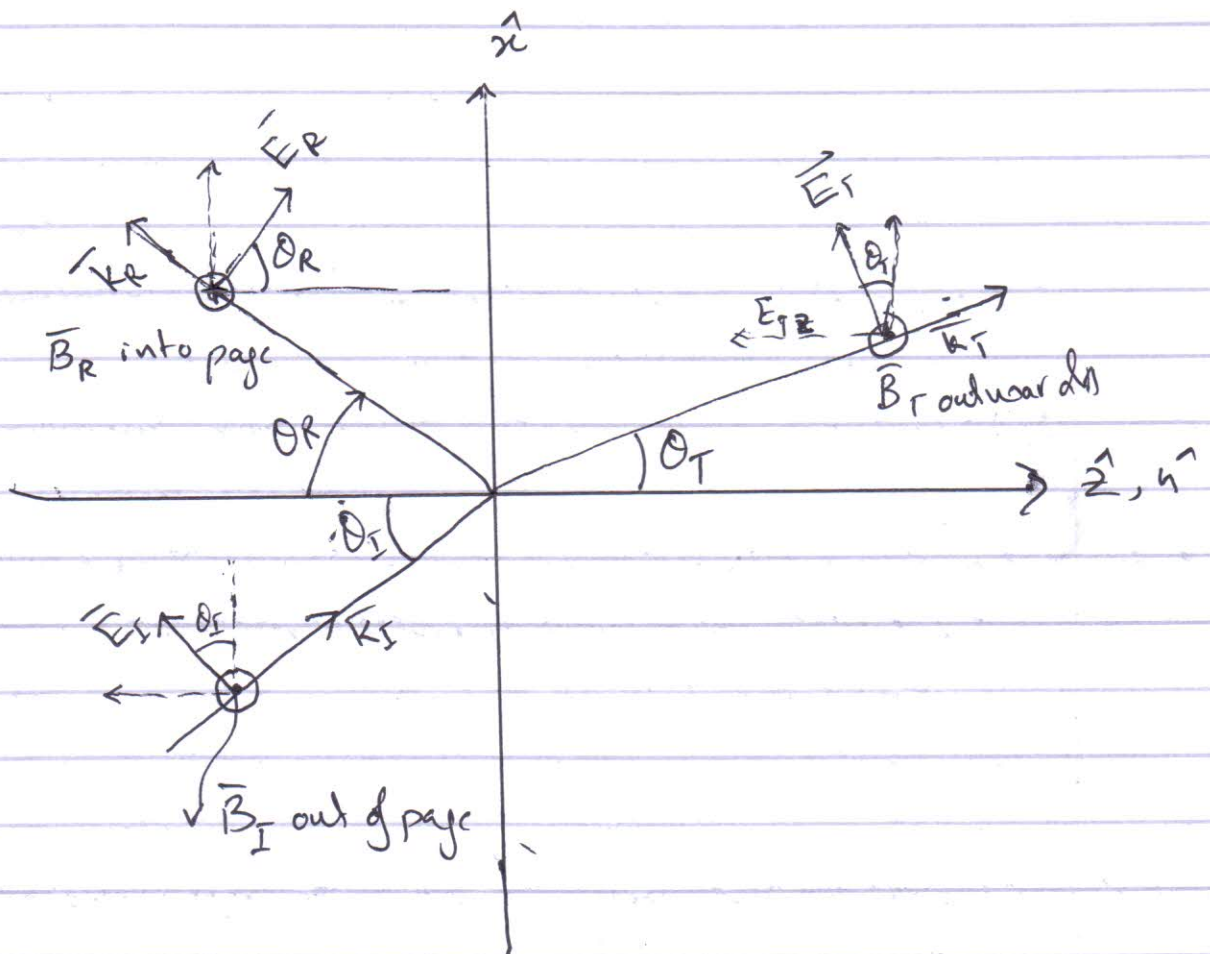 x̂
E̅R
θR
k̅R
B̅R into page
θR
E⃗T
θT
ETz
k̅T
B̅T outwards
θT
ẑ, n̂
θI
E̅I
θI
k̅I
B̅I out of page